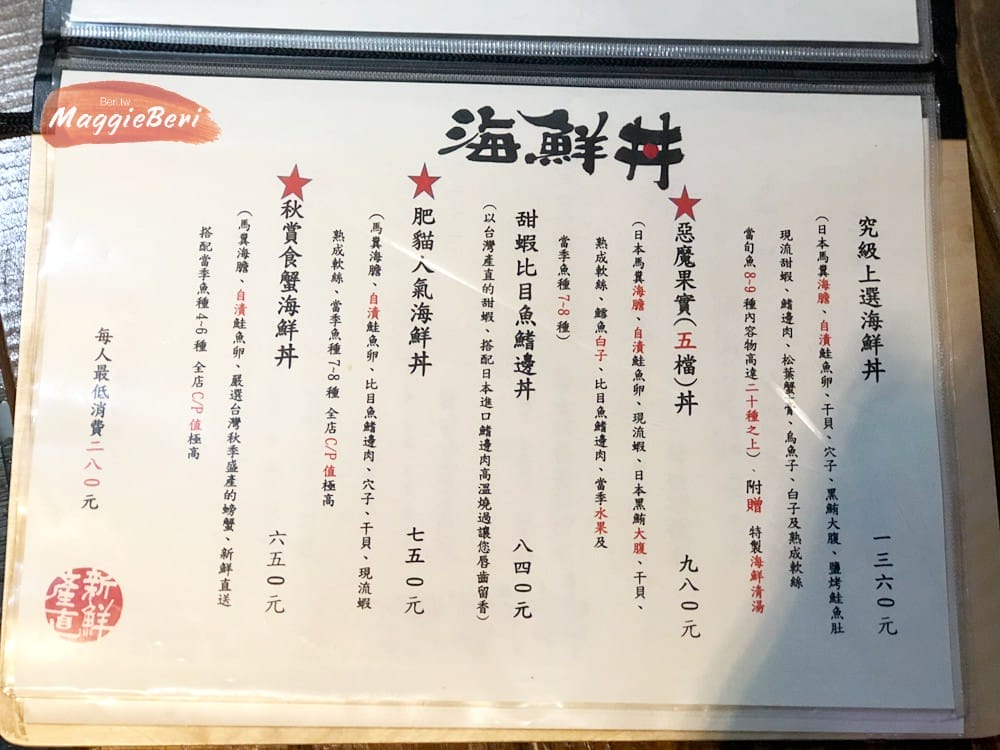 Beri.tw
MaggieBeri
海鮮丼
究級上選海鮮丼
一三六0元
(日本馬糞海膽、自漬鮭魚卵、干貝、穴子、黑鮪大腹、鹽烤鮭魚肚
現流甜蝦、鰭邊肉、松葉蟹膏、烏魚子、白子及熟成軟絲
當旬魚8~9種內容物高達二十種之上)、附贈 特製海鮮清湯
★惡魔果實(五檔)丼
九八0元
(日本馬糞海膽、自漬鮭魚卵、現流蝦、日本黑鮪大腹、干貝、
熟成軟絲、鱈魚白子、比目魚鰭邊肉、當季水果及
當季魚種7~8種)
甜蝦比目魚鰭邊丼
八四0元
(以台灣產直的甜蝦、搭配日本進口鰭邊肉高溫燒過讓您唇齒留香)
★肥貓人氣海鮮丼
七五0元
(馬糞海膽、自漬鮭魚卵、比目魚鰭邊肉、穴子、干貝、現流蝦
熟成軟絲、當季魚種7~8種 全店C/P值極高
★秋賞食蟹海鮮丼
六五0元
(馬糞海膽、自漬鮭魚卵、嚴選台灣秋季盛產的螃蟹、新鮮直送
搭配當季魚種4~6種 全店C/P值極高
每人最低消費二八0元
新鮮
產直